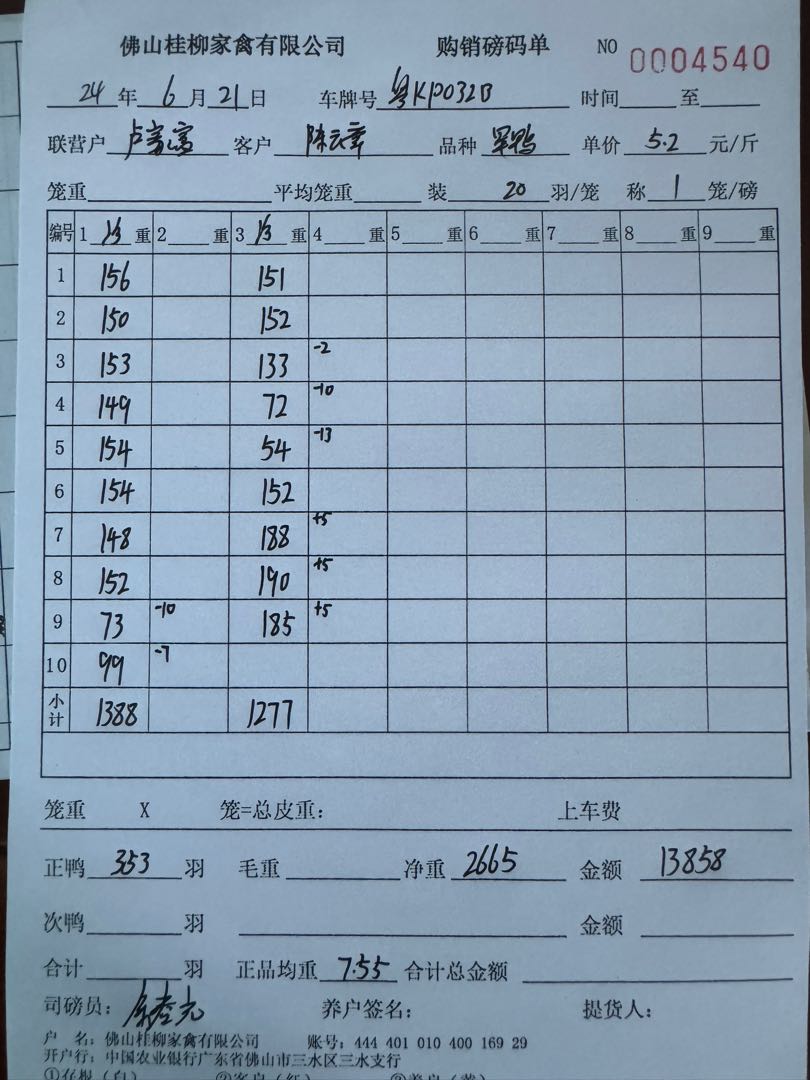 佛山桂柳家禽有限公司 购销磅码单 NO 0004540
24 年 6 月 21 日 车牌号 粤KP032B 时间 至
联营户 卢 客户 陈云 品种 单价 5.2 元/斤
笼重 平均笼重 装 20 羽/笼 称 1 笼/磅
编号 1 1/3 重 2 重 3 1/3 重 4 重 5 重 6 重 7 重 8 重 9 重
1 156 151
2 150 152
3 153 133 -2
4 149 72 -10
5 154 54 -13
6 154 152
7 148 188 +5
8 152 190 +5
9 73 -10 185 +5
10 99 -7
小计 1388 1277
笼重 X 笼=总皮重: 上车费
正鸭 353 羽 毛重 净重 2665 金额 13858
次鸭 羽 金额
合计 羽 正品均重 7.55 合计总金额
司磅员: 养户签名: 提货人:
户 名: 佛山桂柳家禽有限公司 账号: 444 401 010 400 169 29
开户行: 中国农业银行广东省佛山市三水区三水支行
①存根(白) ②客户(红) ③养户(黄)